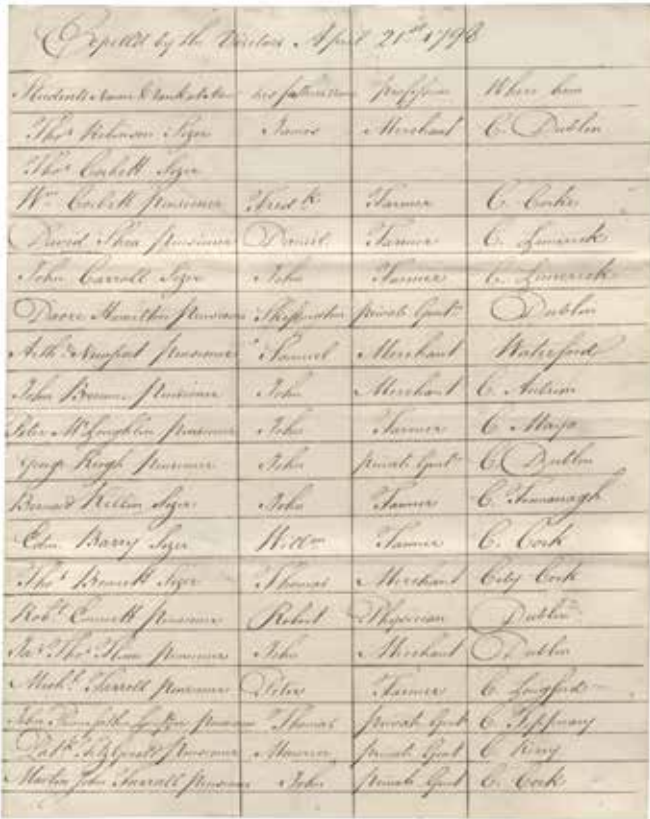 Expelled by the Visitors April 21st 1798
Students Name & his father's name profession Where born
Thos Robinson Sizer James Merchant C. Dublin
Thos Corbett Sizer
Wm Corbett Pensioner Fredk Farmer C. Corke
David Shea Pensioner Daniel Farmer C. Limerick
John Carroll Sizer John Farmer C. Limerick
Dacre Hamilton Pensioner private Gent Dublin
Arthr Newport Pensioner Samuel Merchant Waterford
John Browne Pensioner John Merchant C. Antrim
Peter McLoughlin Pensioner John Farmer C. Mayo
George Keogh Pensioner John private Gent C. Dublin
Bernard Killen Sizer John Farmer C. Fermanagh
Edm Barry Sizer Willm Farmer C. Cork
Thos Bennett Sizer Thomas Merchant City Cork
Robt Emmett Pensioner Robert Physician Dublin
Jas Thos Flinn Pensioner John Merchant Dublin
Michl Farrell Pensioner Peter Farmer C. Longford
John Pensioner Thomas private Gent C. Tipperary
Patk FitzGerald Pensioner Maurice private Gent C Kerry
Martin John Ferrall Pensioner John private Gent C. Cork